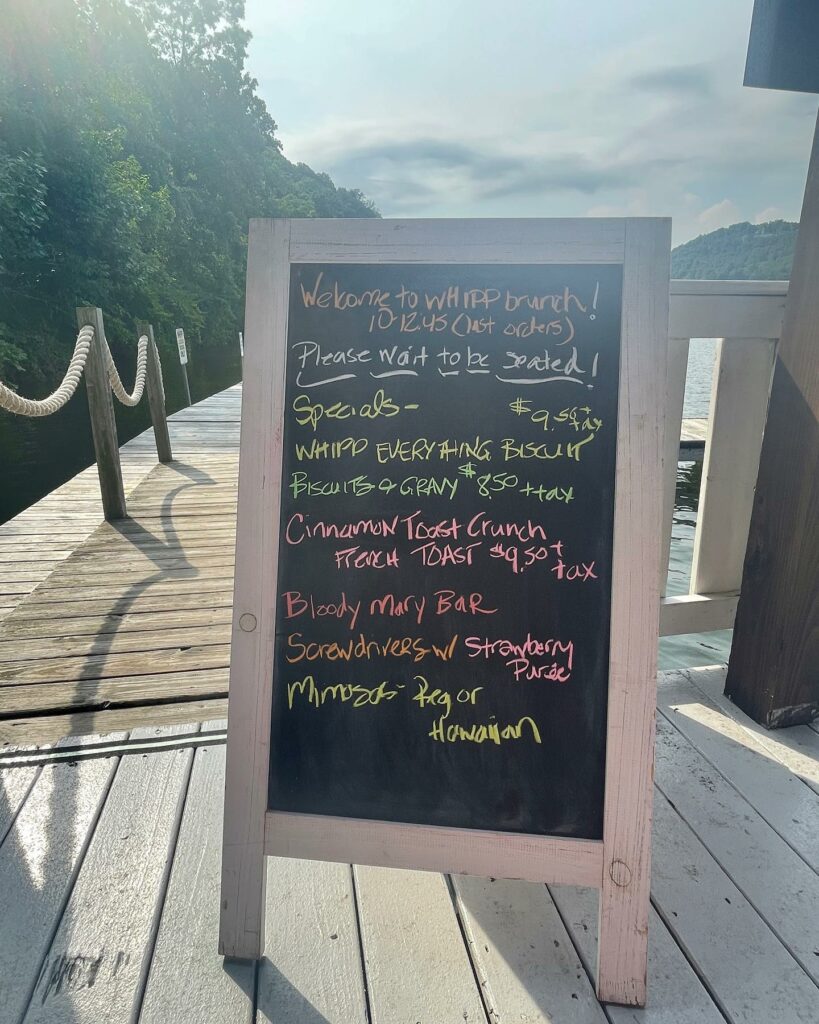 Welcome to WHIPP brunch!
10-12:45 (last orders)
Please wait to be seated!
Specials- $9.50+tax
WHIPP EVERYTHING BISCUIT
BISCUITS & GRAVY $8.50 + tax
Cinnamon Toast Crunch
FRENCH TOAST $9.50 + tax
Bloody Mary BAR
Screwdrivers w/ Strawberry
Purée
Mimosas- Reg or
Hawaiian